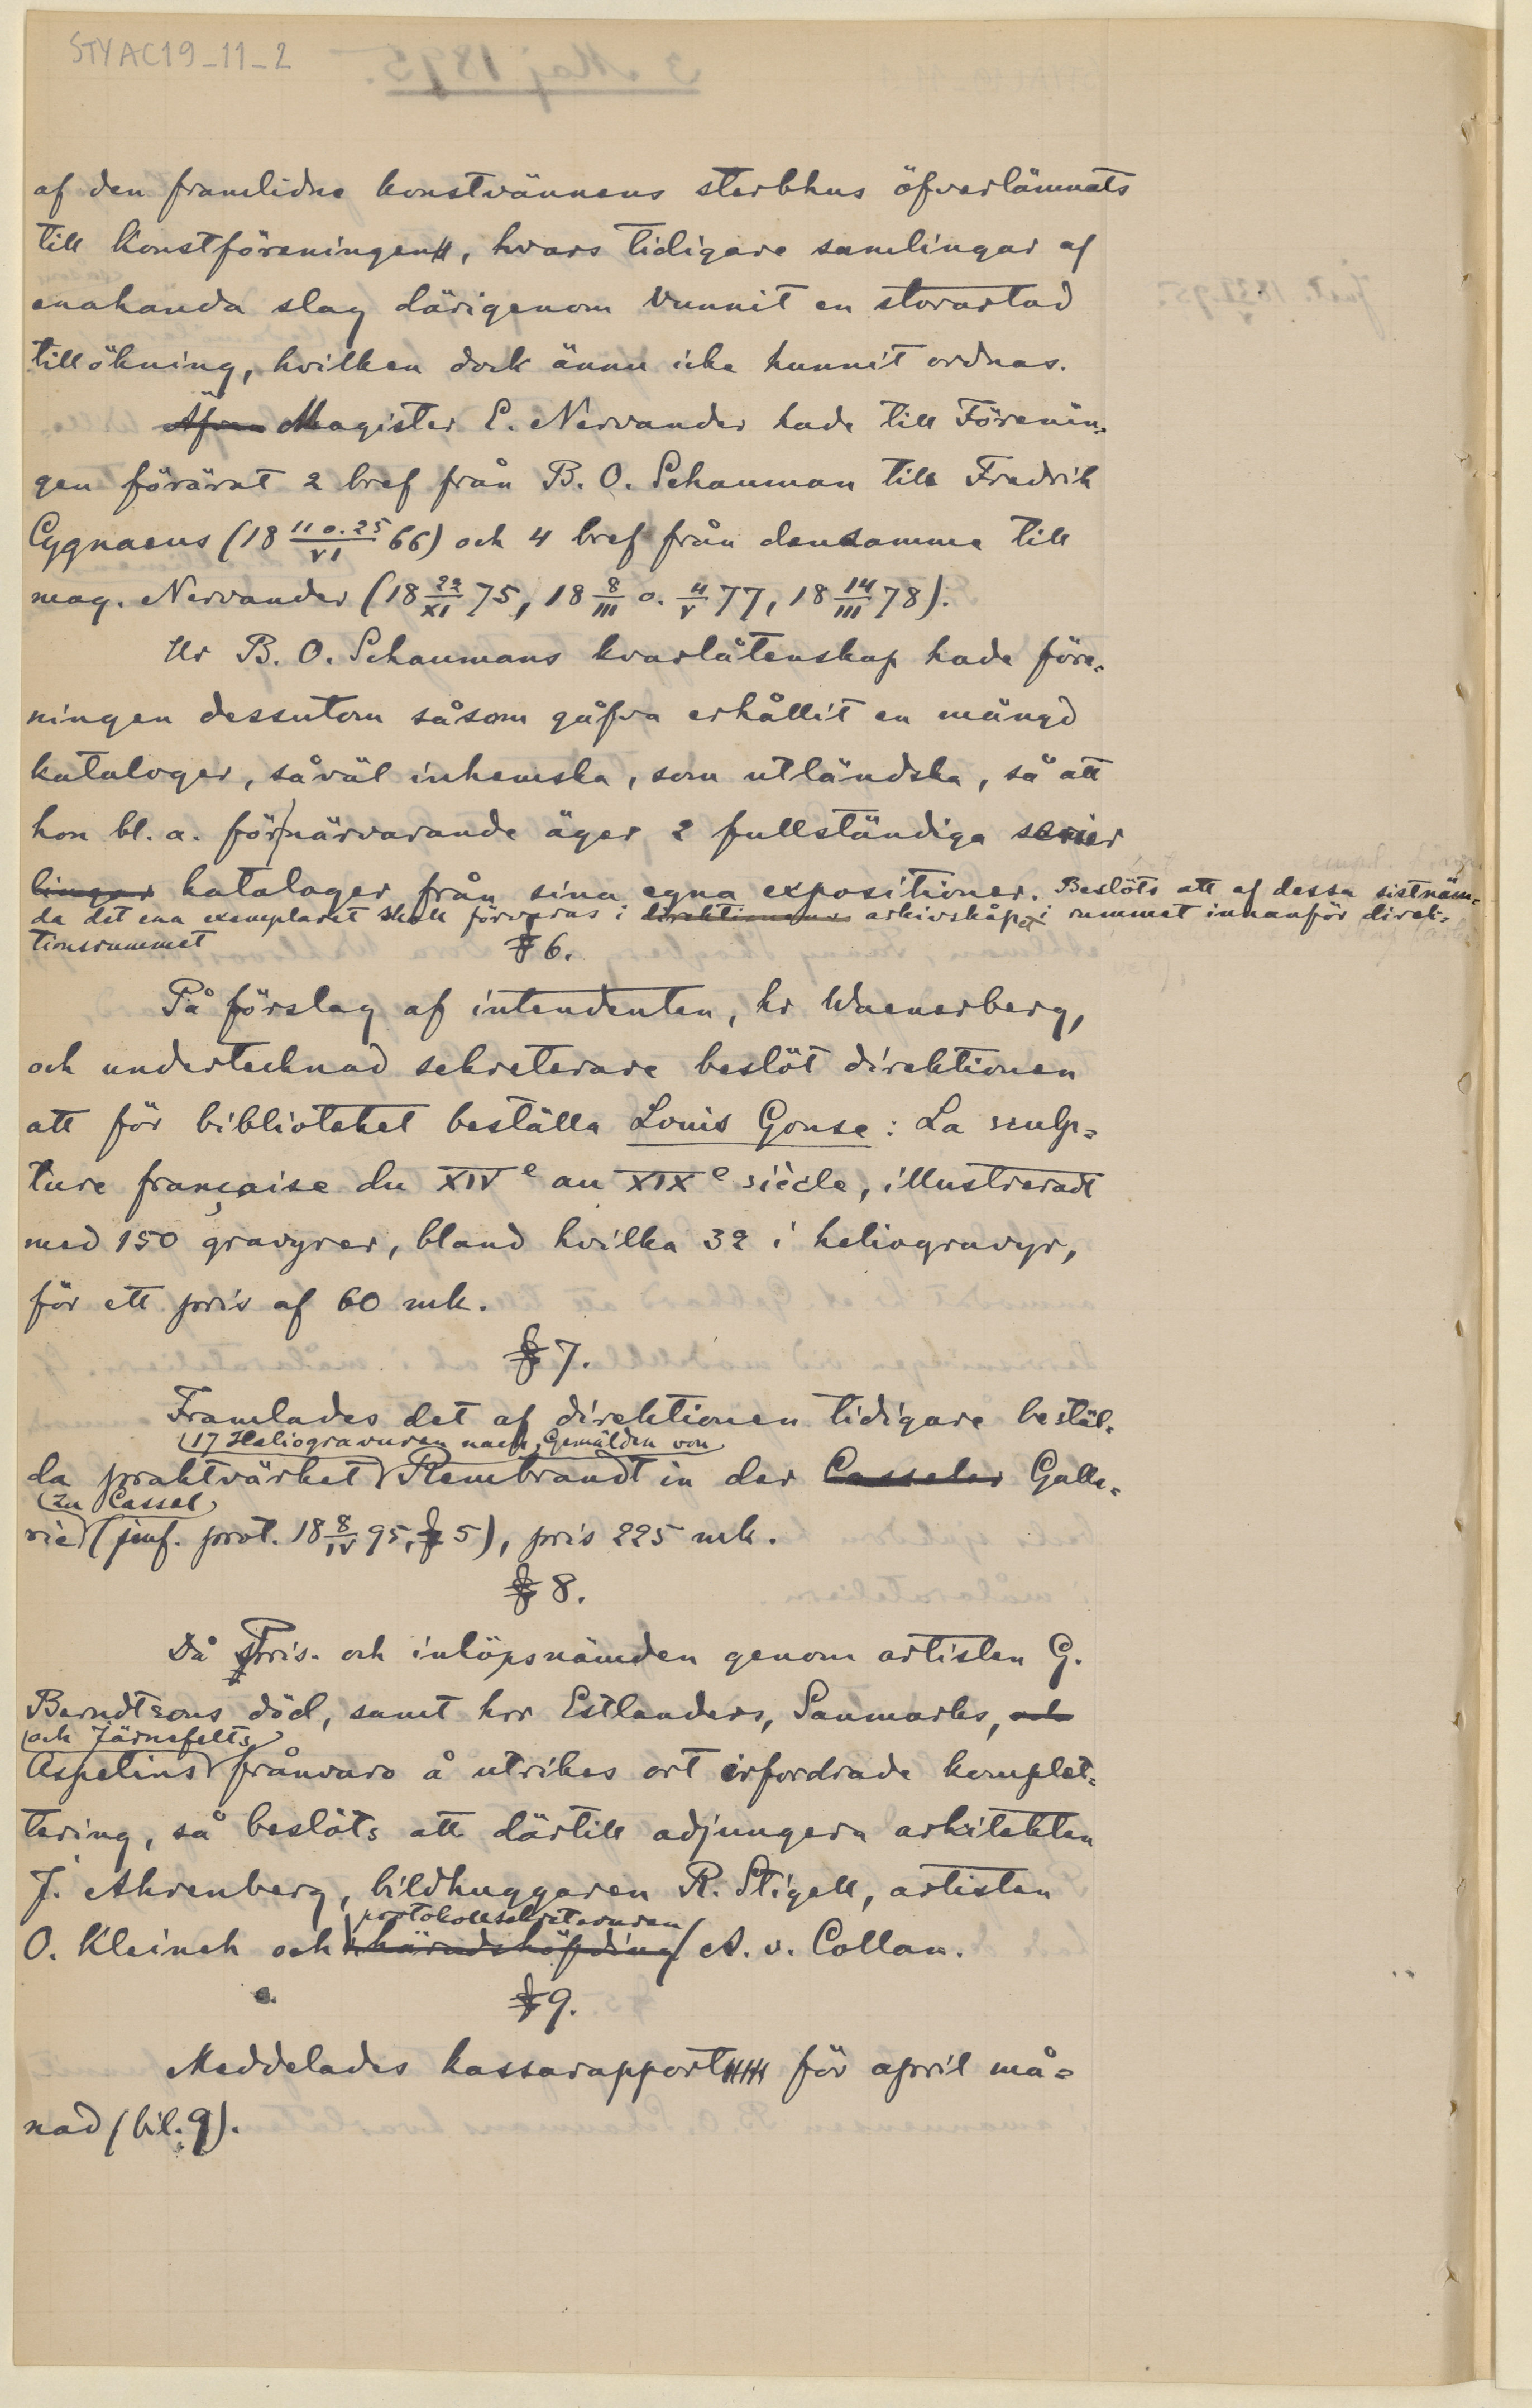 STYAC19_11_2
af den framlidne konstvännens sterbhus öfverlämnats
till Konstföreningen, hvars tidigare samlingar af
enahanda slag därigenom vunnit en storartad
tillökning, hvilken dock ännu icke hunnit ordnas.
Äfven Magister E. Nervander hade till Förenin-
gen förärat 2 bref från B. O. Schauman till Fredrik
Cygnaeus (18 11 o. 25/VI 66) och 4 bref från densamme till
mag. Nervander (18 22/XI 75, 18 8/III o. 4/V 77, 18 14/III 78).
Ur B. O. Schaumans kvarlåtenskap hade före-
ningen dessutom såsom gåfva erhållit en mängd
kataloger, såväl inhemska, som utländska, så att
hon bl. a. för närvarande äger 2 fullständiga serier
lingar kataloger från sina egna expositioner. Beslöts att af dessa sistnäm-
da det ena exemplaret skall förvaras i direktionens arkivskåpet i rummet innanför direk-
tionsrummet
§ 6.
På förslag af intendenten, hr Waenerberg,
och undertecknad sekreterare beslöt direktionen
att för biblioteket beställa Louis Gonse: La sculp-
ture française du XIVe au XIXe siècle, illustreradt
med 150 gravyrer, bland hvilka 32 i heliogravyr,
för ett pris af 60 mk.
§ 7.
Framlades det af direktionen tidigare bestäl-
17 Heliogravuren nach Gemälden von
da praktvärket Rembrandt in der Casseler Galle-
zu Cassel
rie (jmf. prot. 18 8/IV 95, § 5), pris 225 mk.
§ 8.
Då Pris- och inköpsnämden genom artisten G.
Berndtsons död, samt hrr Estlanders, Sanmarks, och
och Järnefelts
Aspelins frånvaro å utrikes ort erfordrade komplet-
tering, så beslöts att därtill adjungera arkitekten
J. Ahrenberg, bildhuggaren R. Stigell, artisten
protokollsekreteraren
O. Kleineh och häradshöfding A. v. Collan.
§ 9.
Meddelades kassarapport för april må-
nad (bil. 9).